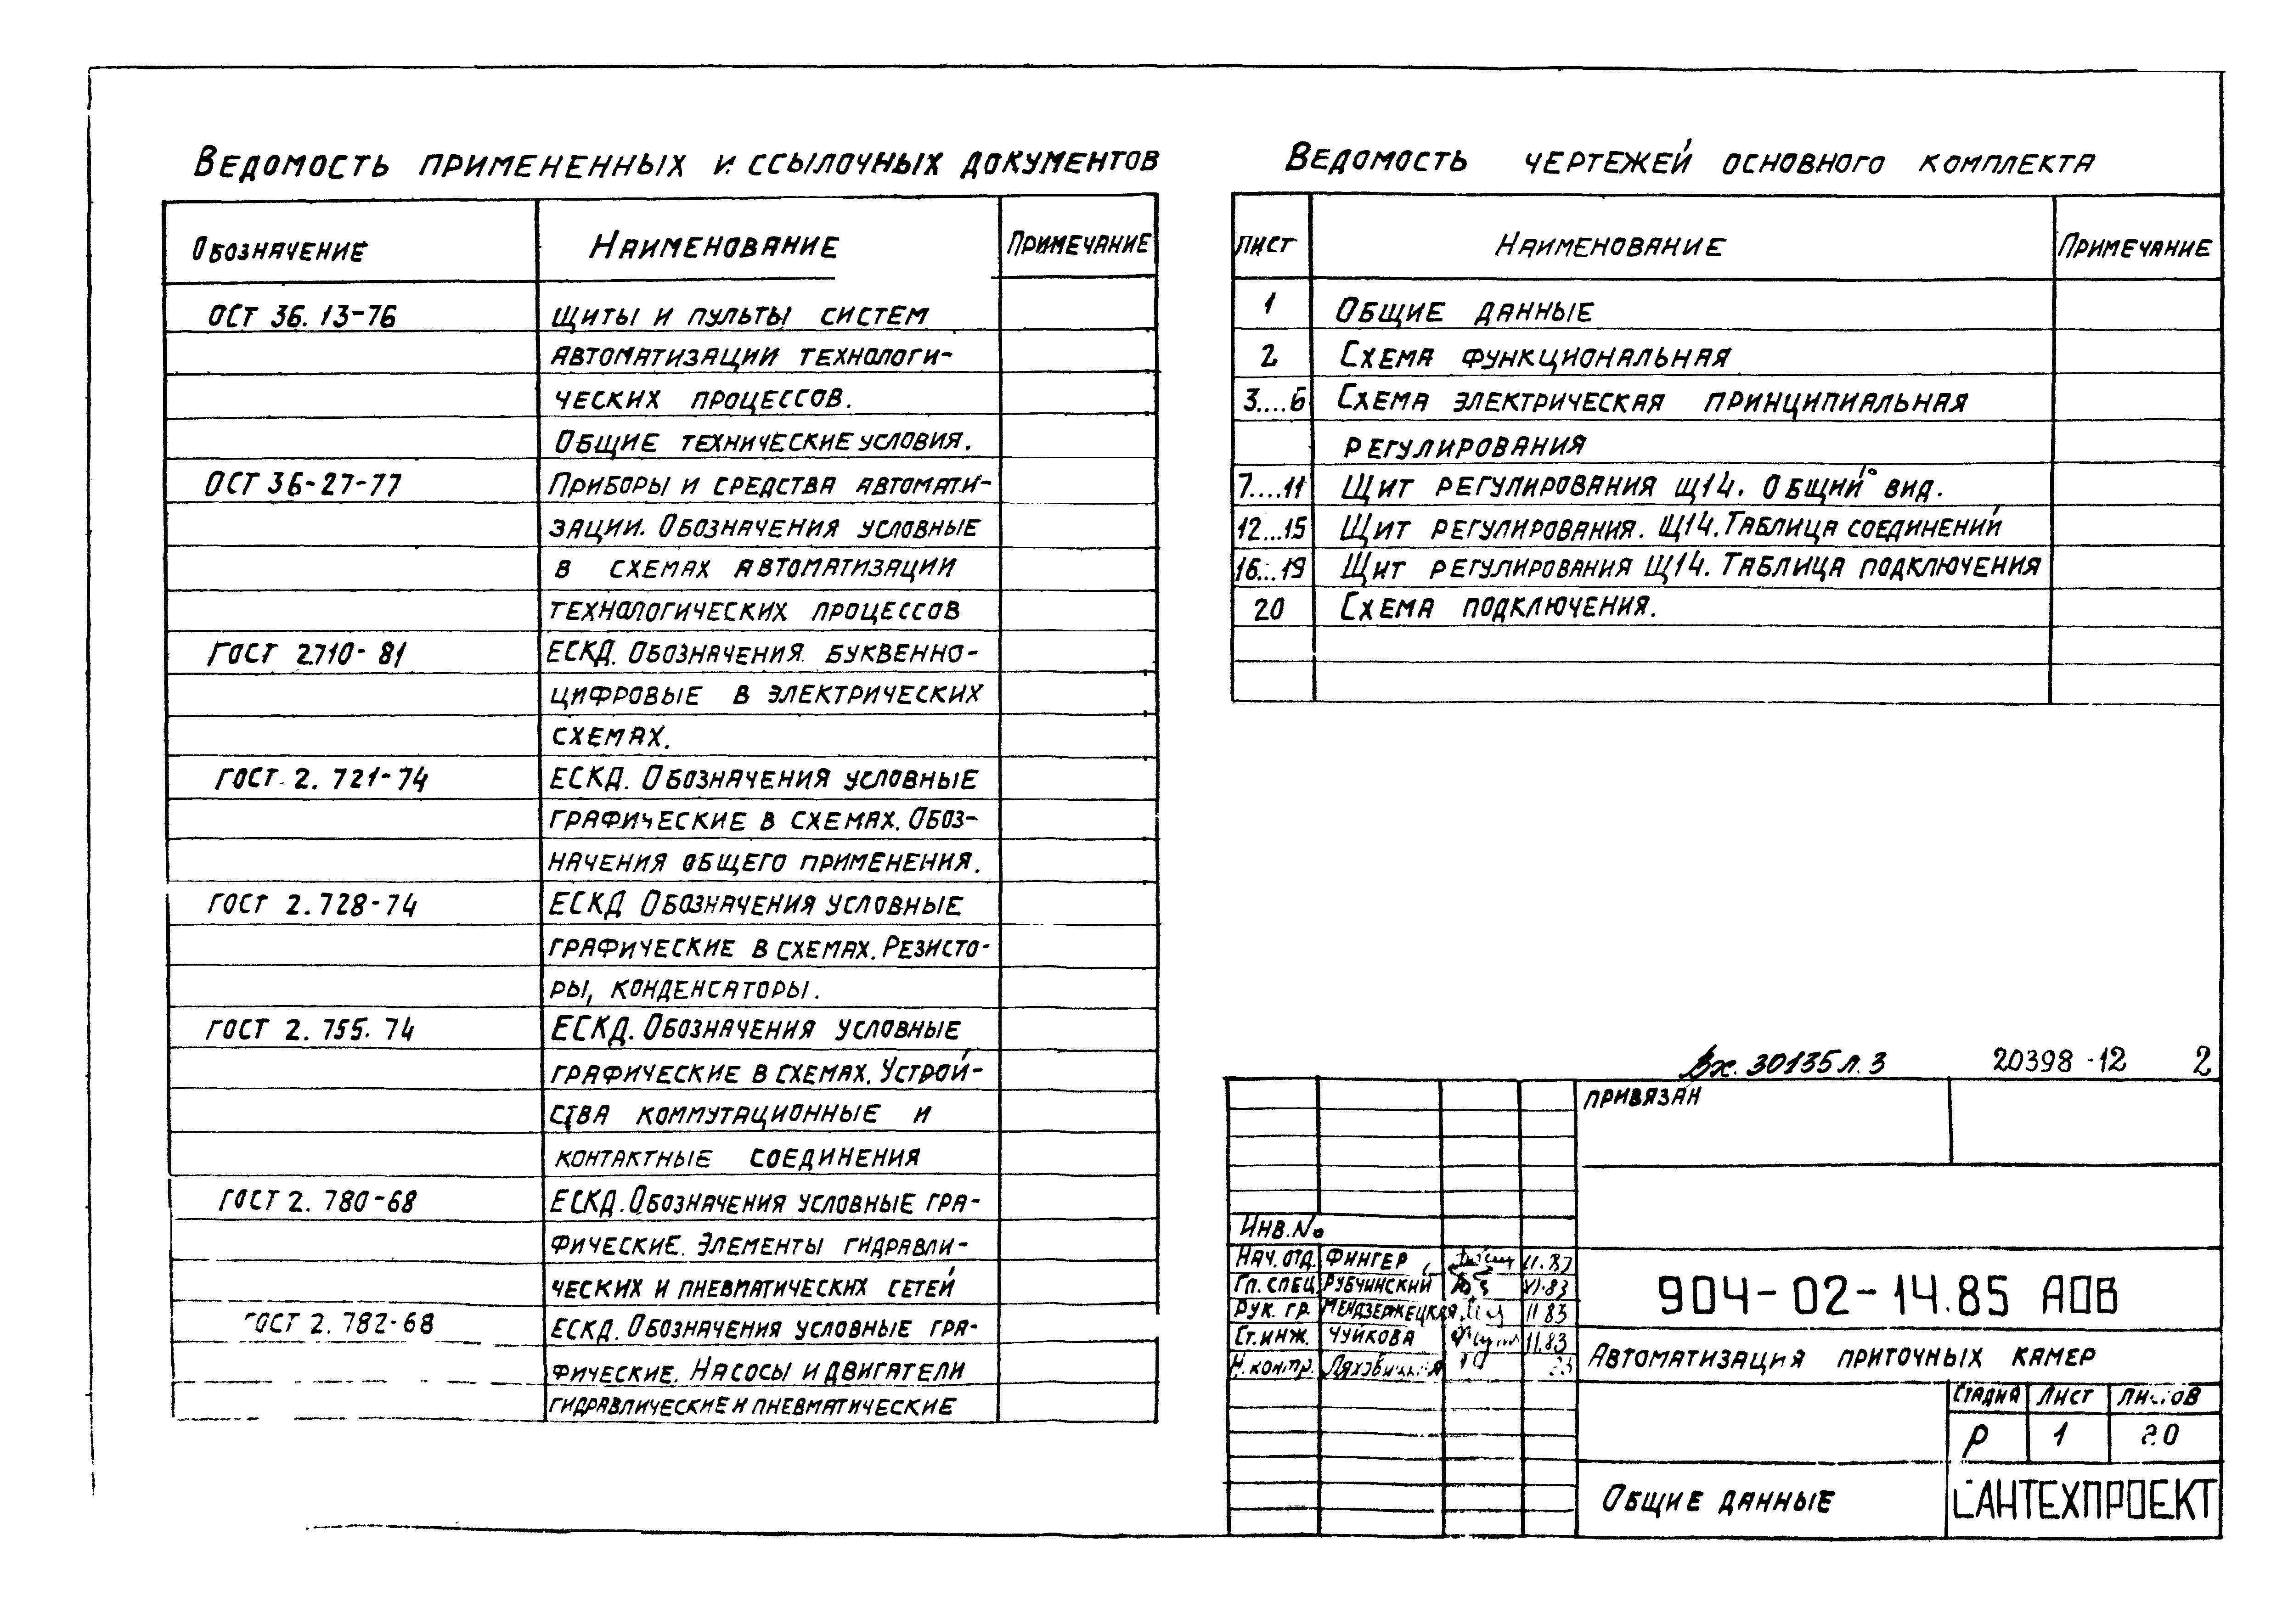 Ведомость примененных и ссылочных документов
Обозначение Наименование Примечание
ОСТ 36.13-76 Щиты и пульты систем
автоматизации технологи-
ческих процессов.
Общие технические условия.
ОСТ 36-27-77 Приборы и средства автомати-
зации. Обозначения условные
в схемах автоматизации
технологических процессов
ГОСТ 2710-81 ЕСКД. Обозначения буквенно-
цифровые в электрических
схемах.
ГОСТ 2.721-74 ЕСКД. Обозначения условные
графические в схемах. Обоз-
начения общего применения.
ГОСТ 2.728-74 ЕСКД Обозначения условные
графические в схемах. Резисто-
ры, конденсаторы.
ГОСТ 2.755.74 ЕСКД. Обозначения условные
графические в схемах. Устрой-
ства коммутационные и
контактные соединения
ГОСТ 2.780-68 ЕСКД. Обозначения условные гра-
фические. Элементы гидравли-
ческих и пневматических сетей
ГОСТ 2.782-68 ЕСКД. Обозначения условные гра-
фические. Насосы и двигатели
гидравлические и пневматические
Ведомость чертежей основного комплекта
Лист Наименование Примечание
1 Общие данные
2 Схема функциональная
3....6 Схема электрическая принципиальная
регулирования
7....11 Щит регулирования Щ14. Общий вид.
12...15 Щит регулирования. Щ14. Таблица соединений
16...19 Щит регулирования Щ14. Таблица подключения
20 Схема подключения.
Вх. 30135 л. 3 20398-12 2
Привязан
Инв. №
Нач. отд. Фингер
Гл. спец. Рубчинский XI.83
Рук. гр. 11.83
Ст. инж. Чуйкова 11.83
Н. контр.
904-02-14.85 АОВ
Автоматизация приточных камер
Стадия Лист Листов
Р 1 20
Общие данные
САНТЕХПРОЕКТ